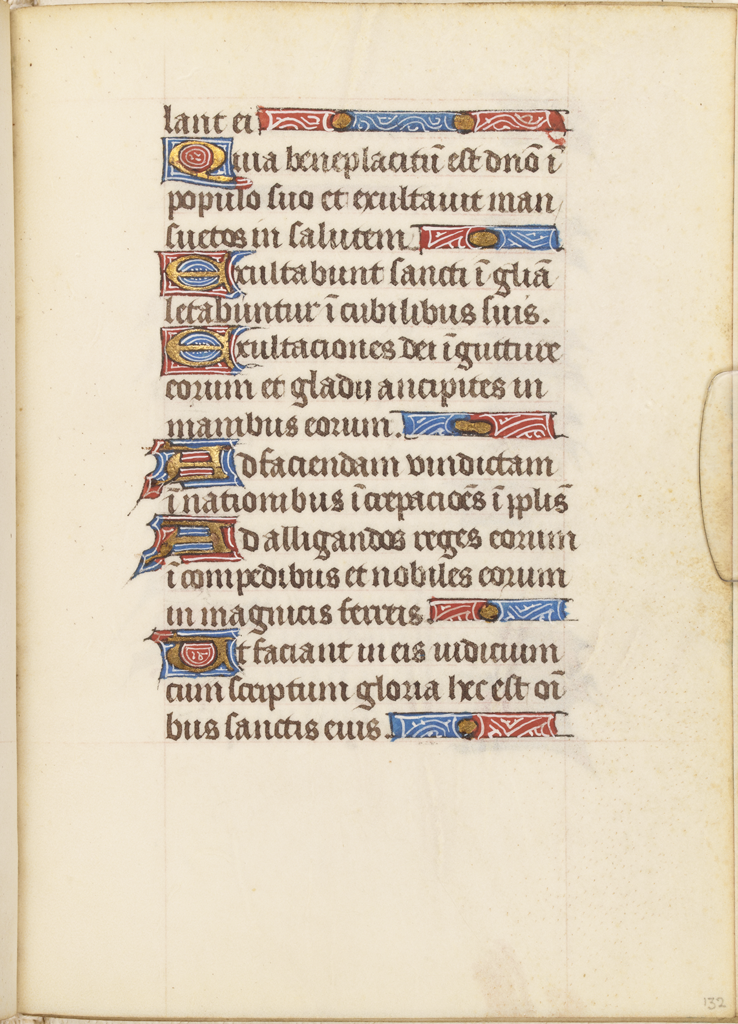 lant ei
Quia beneplacitū est dnō ī
populo suo et exultauit man
suetos in salutem
Exultabunt sancti ī gliā
letabuntur ī cubilibus suis.
Exultaciones dei ī gutture
eorum et gladii ancipites in
manibus eorum.
Ad faciendam vindictam
ī nationibus īcrepacioēs ī pplīs
Ad alligandos reges eorum
ī compedibus et nobiles eorum
in magnicis ferreis.
Ut faciant in eis iudicium
cum scriptum gloria hec est oī
bus sanctis eius.
132